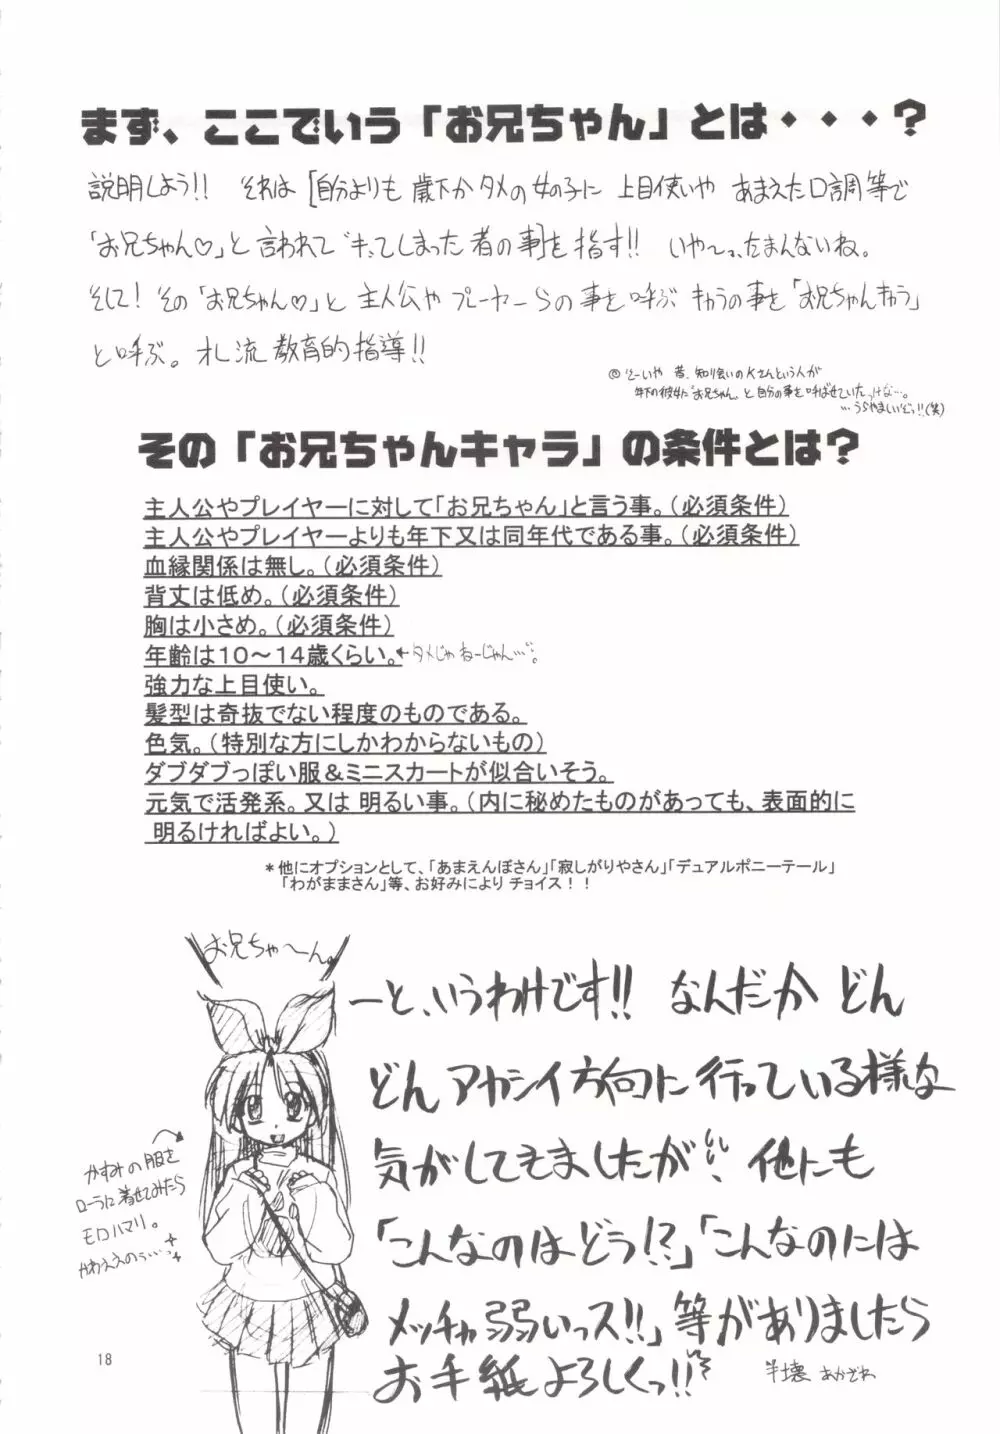 まず、ここでいう「お兄ちゃん」とは・・・？
説明しよう!! それは［自分よりも 歳下か タメの 女の子に 上目使いや あまえた口調等で
「お兄ちゃん♡」と 言われて ｷてしまった 者の事］を指す!! いや〜っ、たまんないね。
そして! その「お兄ちゃん♡」と 主人公や プレーヤーらの事を呼ぶ キャラの事を「お兄ちゃんキャラ」
と呼ぶ。オレ流教育的指導!!
◎そーいや 昔、知り合いのKさんという人が
年下の彼女に"お兄ちゃん"と自分の事を呼ばせていたっけな…。
…うらやましいぞっ!!(笑)
その「お兄ちゃんキャラ」の条件とは？
主人公やプレイヤーに対して「お兄ちゃん」と言う事。（必須条件）
主人公やプレイヤーよりも年下又は同年代である事。（必須条件）
血縁関係は無し。（必須条件）
背丈は低め。（必須条件）
胸は小さめ。（必須条件）
年齢は１０〜１４歳くらい。←タメじゃねーじゃん…。
強力な上目使い。
髪型は奇抜でない程度のものである。
色気。（特別な方にしかわからないもの）
ダブダブっぽい服＆ミニスカートが似合いそう。
元気で活発系。又は 明るい事。（内に秘めたものがあっても、表面的に
明るければよい。）
＊他にオプションとして、「あまえんぼさん」「寂しがりやさん」「デュアルポニーテール」
「わがままさん」等、お好みにより チョイス！！
お兄ちゃ〜ん。
ーと、いうわけです!! なんだか どん
どん アカシイ方向に行っている様な
気がしてきましたが 他にも
「こんなのはどう!?」「こんなのには
メッチャ弱いっス!!」等がありましたら
お手紙よろしくっ!!
半壊 あかざわ
かすみの服を
ローラに着せてみたら
モロハマリ。
かわええのぅ…
18